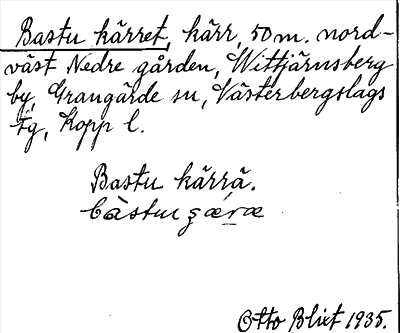 Bastu kärret, kärr, 50 m. nord-
väst Nedre gården, Wittjärnsberg
by, Grangärde sn, Västerbergslags
tg, Kopp l.
Bastu kärrä.
Otto Blixt 1935.